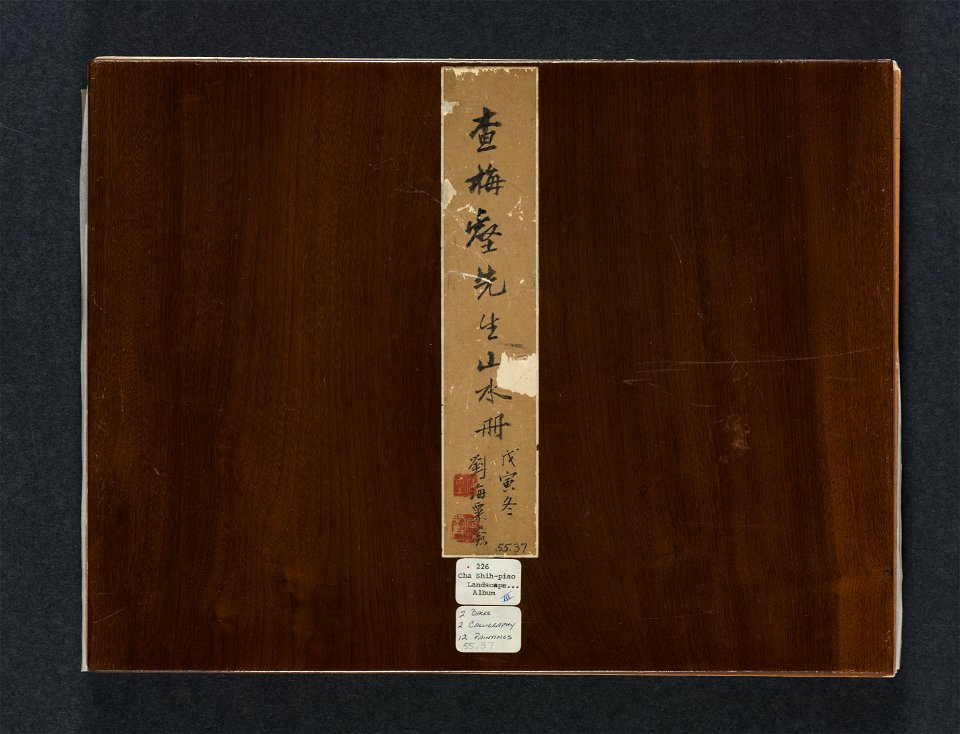 查梅壑先生山水册
戊寅冬
劉海粟㒲
55.37
226
Cha Shih-piao
Landscape...
Album III
2 BDRS
2 CALLIGRAPHY
12 PAINTINGS
55.37